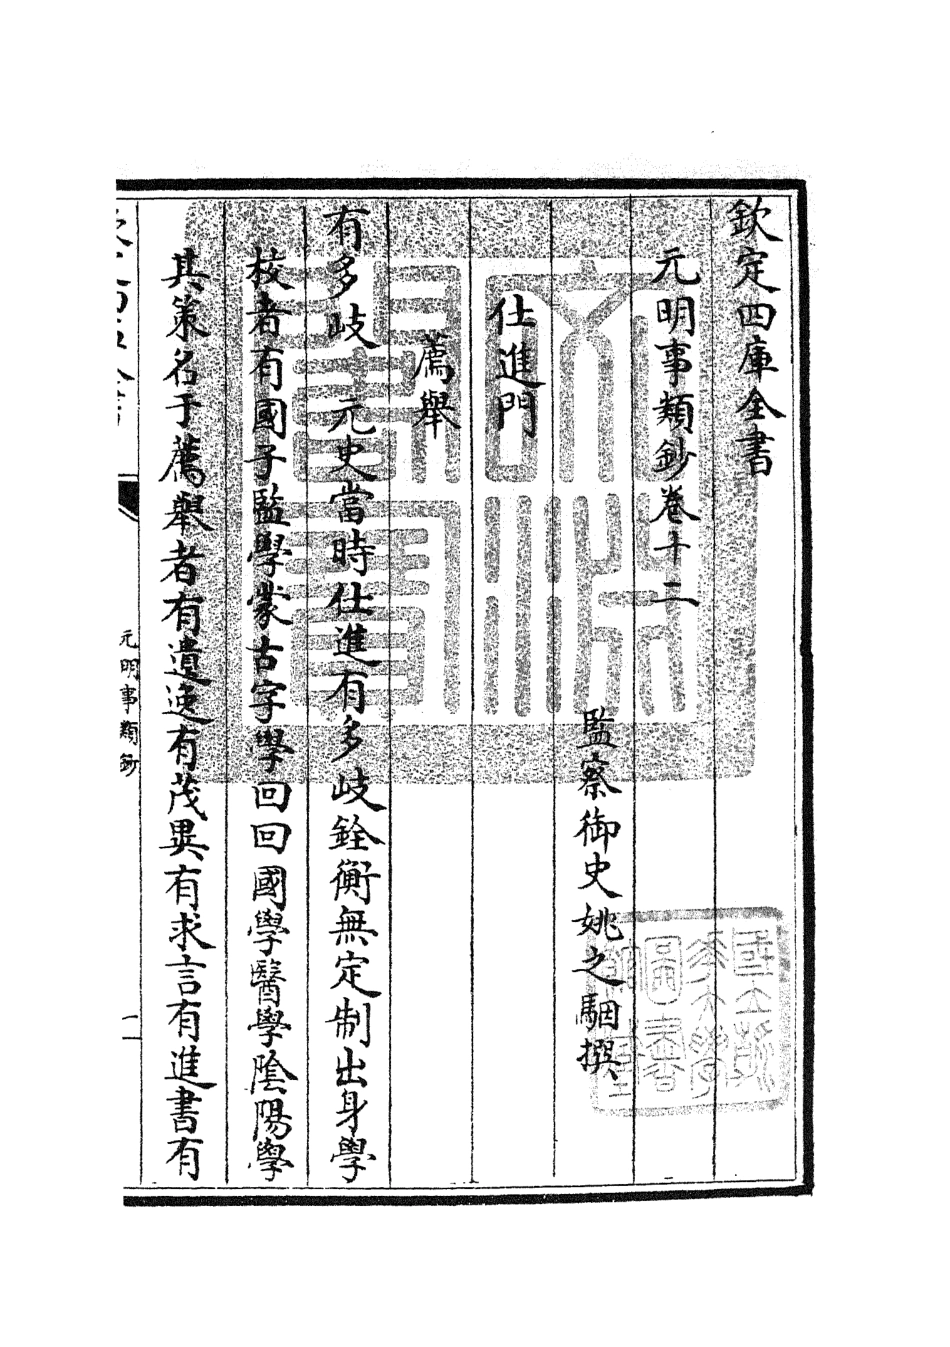 欽定四庫全書
元明事類鈔卷十二
監察御史姚之駰撰
仕進門
薦舉
有多歧 元史當時仕進有多歧銓衡無定制出身學
校者有國子監學蒙古字學回回國學醫學陰陽學
其策名于薦舉者有遺逸有茂異有求言有進書有
元明事類鈔
一